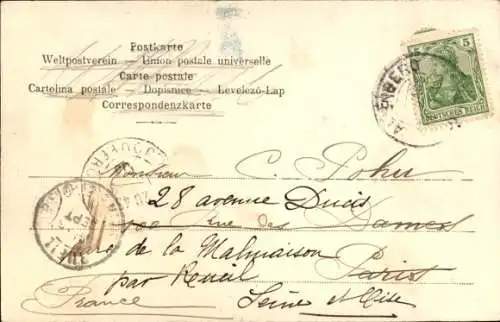 Postkarte
Weltpostverein - Union postale universelle
Carte postale
Cartolina postale - Dopisnice - Levelező-Lap
Correspondenzkarte
5 5
DEUTSCHES REICH
Monsieur C.
28 avenue Ducis
rue des Dames
Parc de la Malmaison
par Rueil Paris
France Seine et Oise